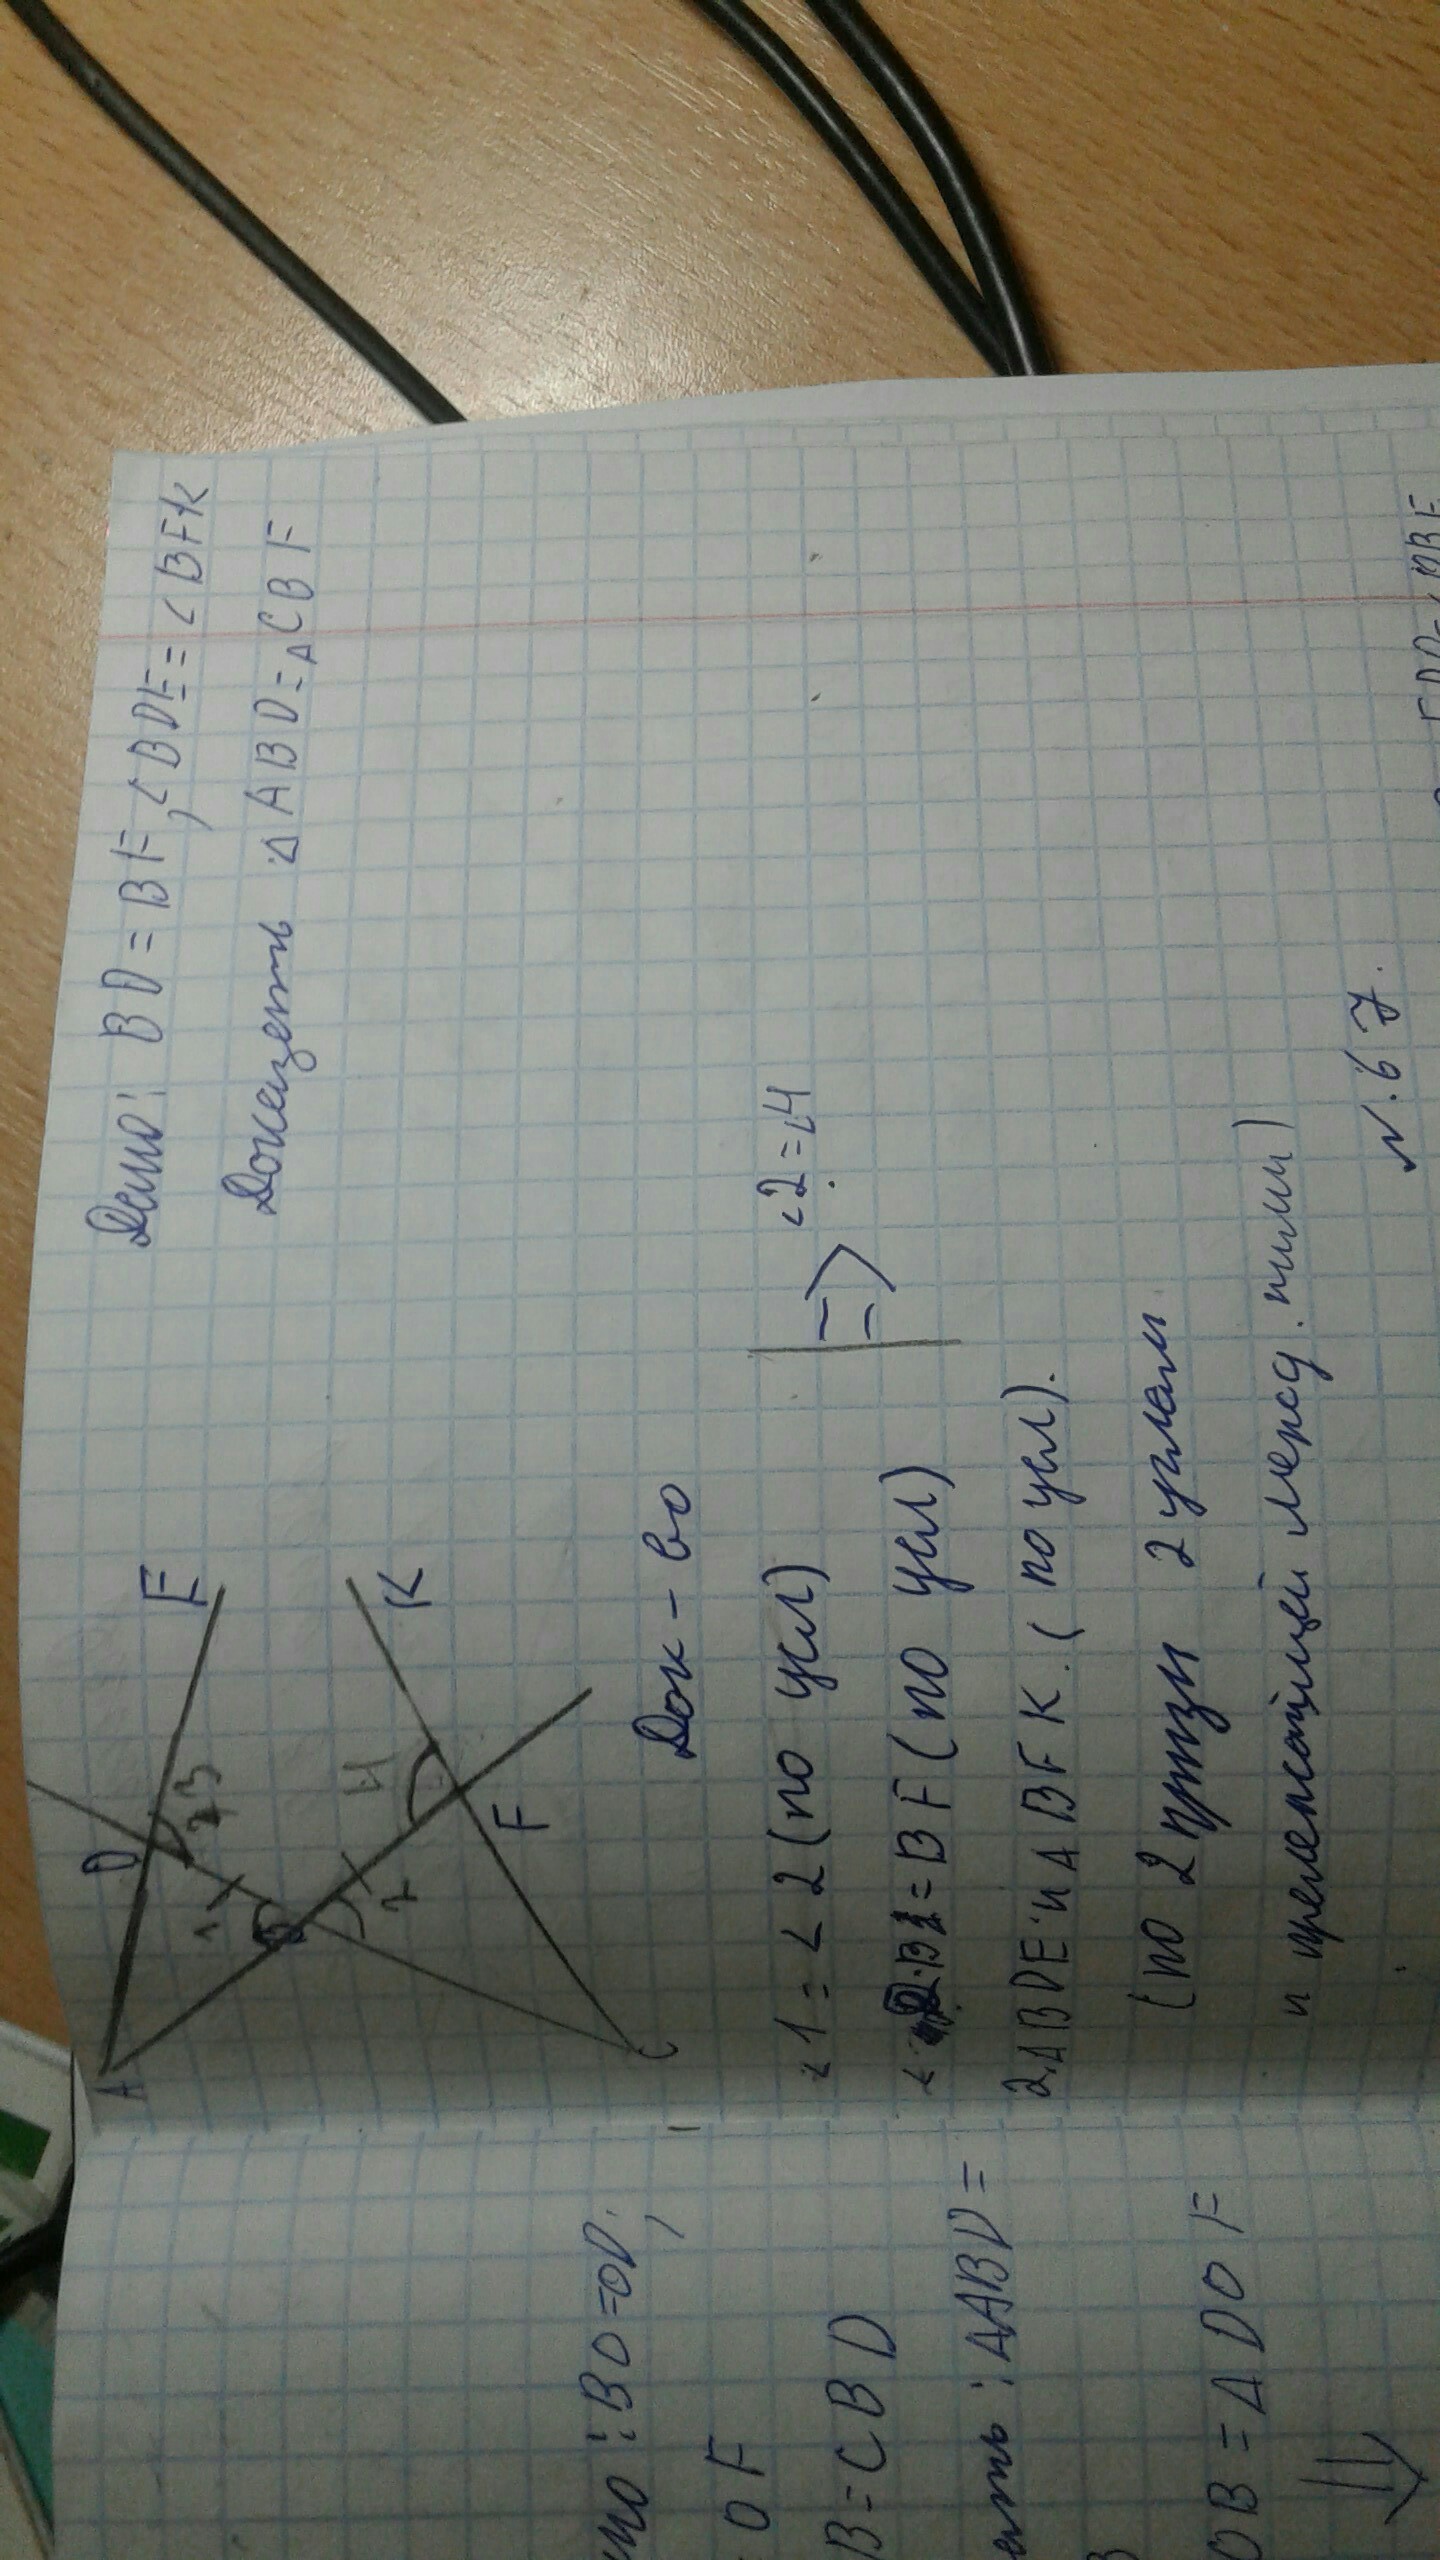 Дано: BD = BF, <BDE = <BFK
Доказать △ABD = △CBF
A
D
E
1
3
B
2
4
F
K
C
Док-во
<1 = <2 (по усл)
= BF (по усл)
=> <2 = <4
2. △BDE и △BFK. (по усл).
(по 2 призн 2 углам
и прележащей межд. ними)
N. 67.
: BO = OD,
OF
B = CBD
: △ABD =
OB = △DOF